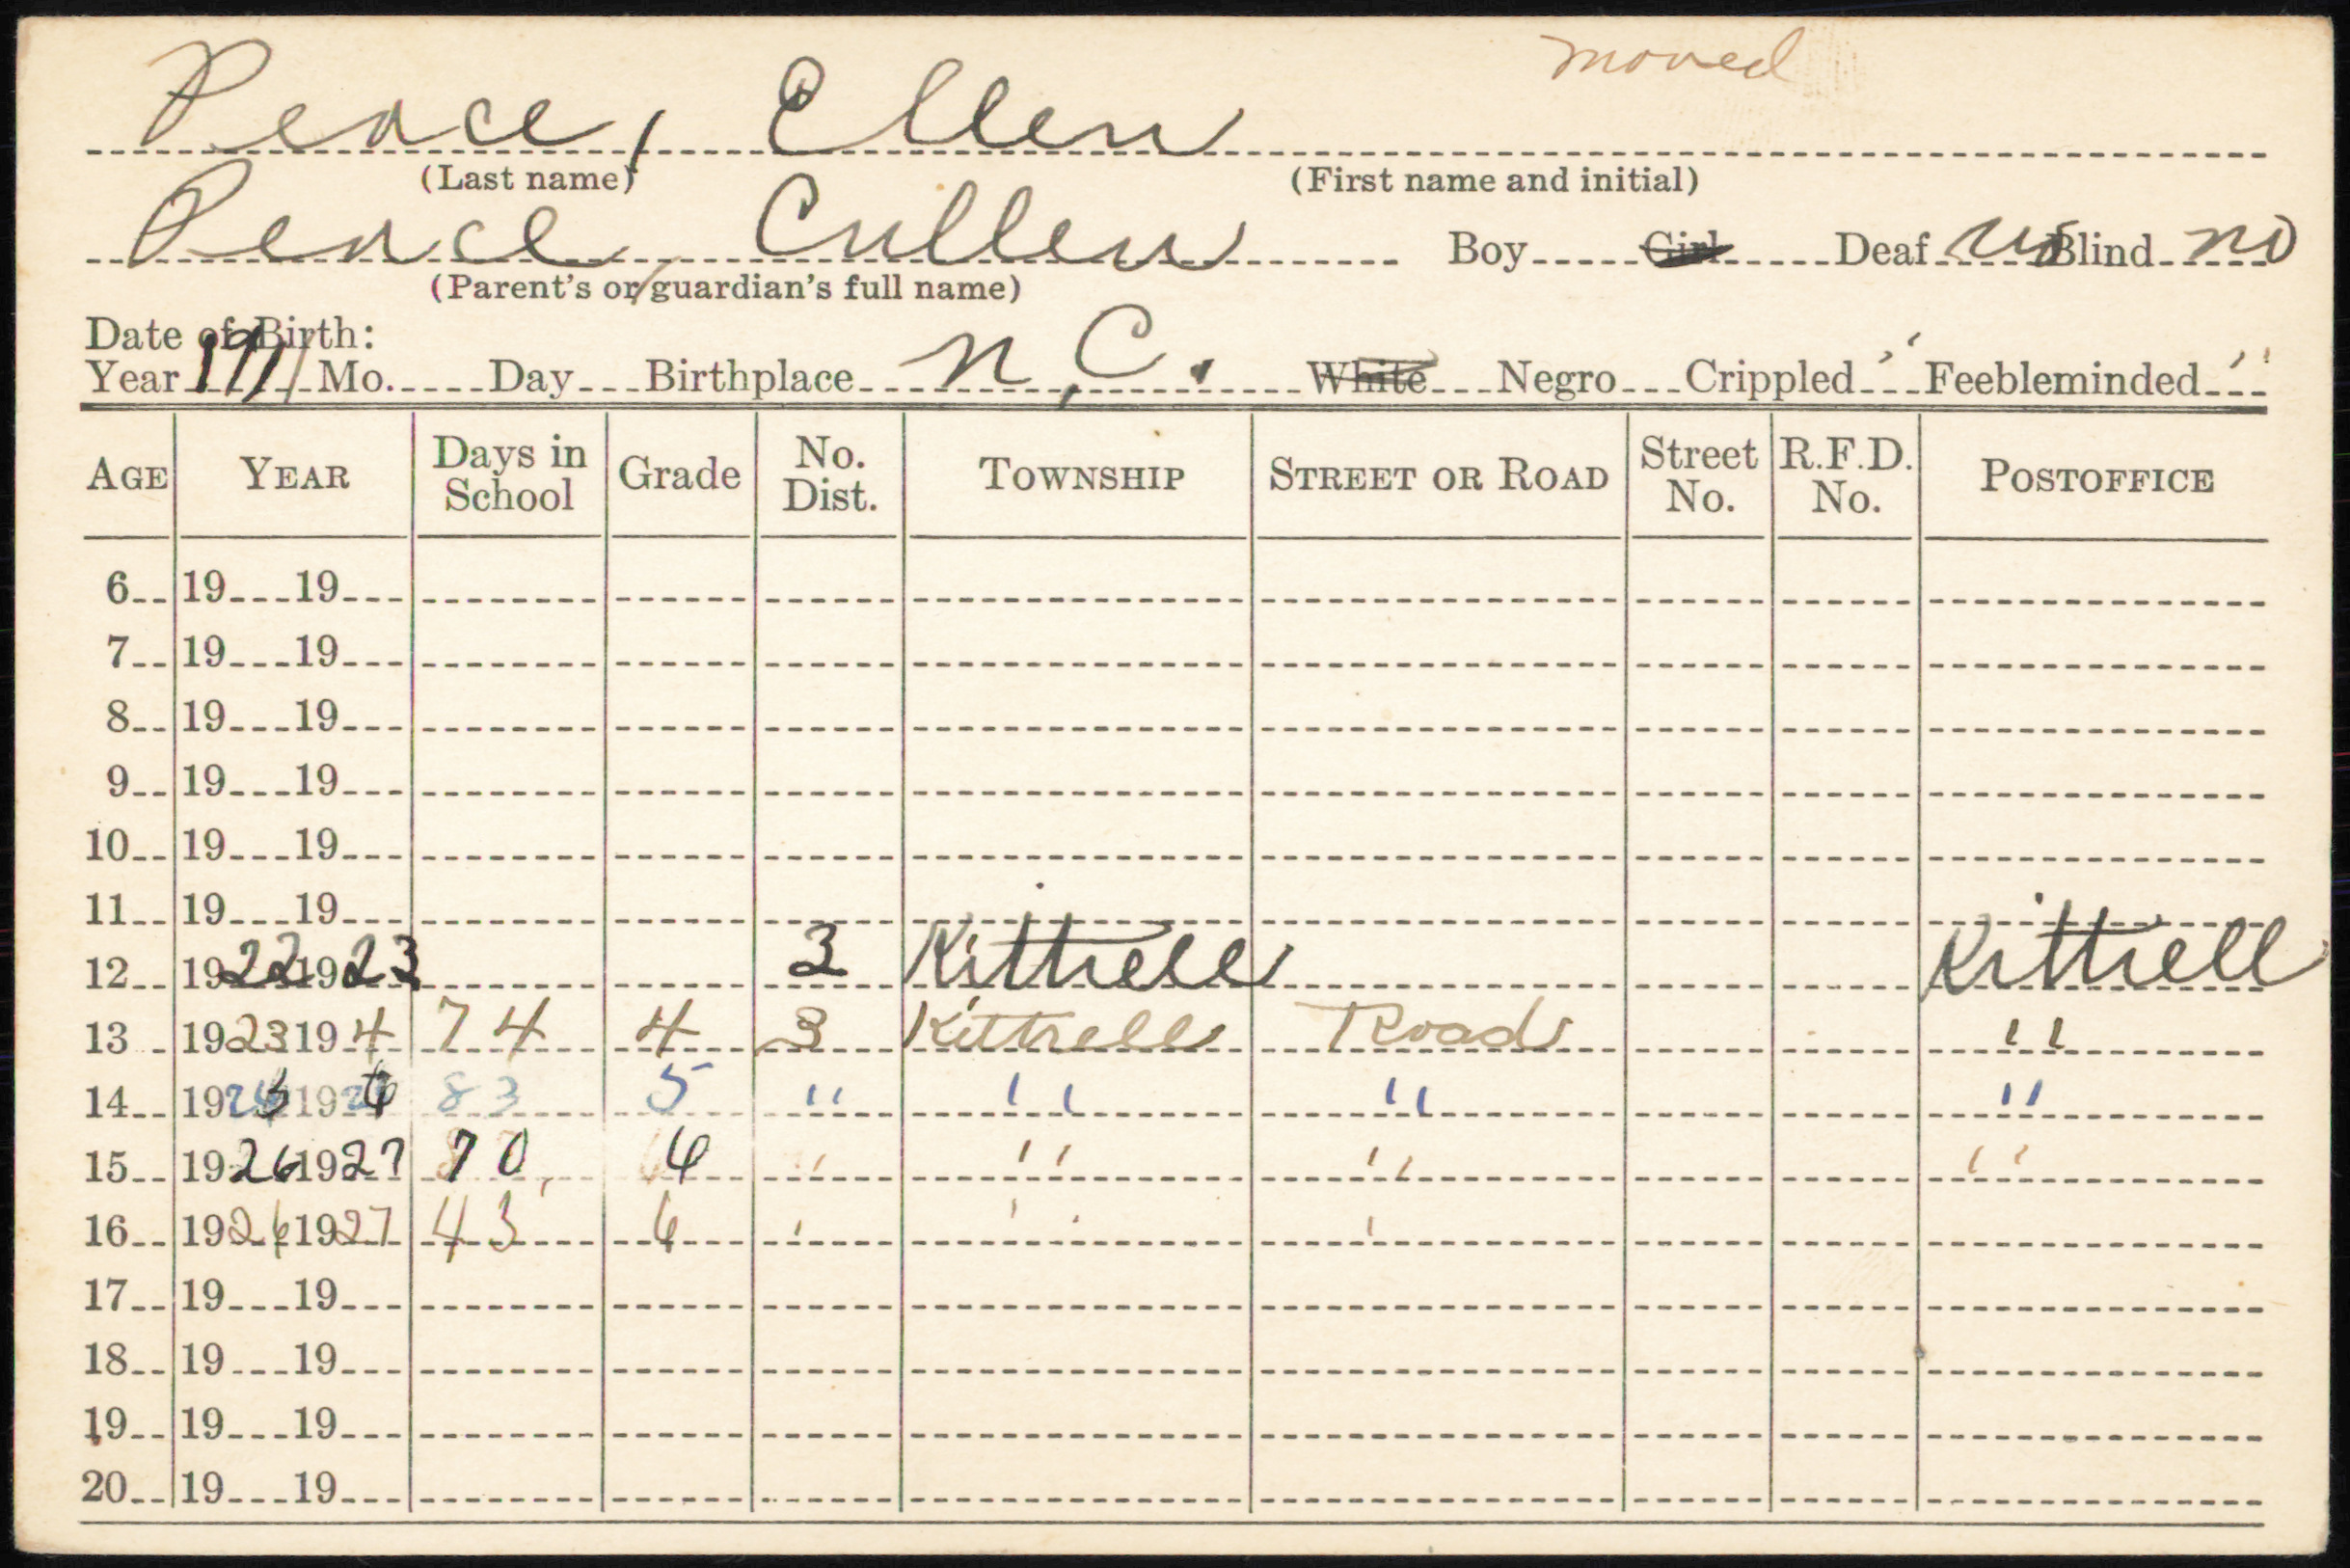 moved
Peace, Ellen
(Last name) (First name and initial)
Peace, Cullen Boy Girl Deaf no Blind no
(Parent's or guardian's full name)
Date of Birth:
Year 1911 Mo. Day Birthplace N.C. White Negro Crippled " Feebleminded "
AGE YEAR Days in School Grade No. Dist. TOWNSHIP STREET OR ROAD Street No. R.F.D. No. POSTOFFICE
6 19 19
7 19 19
8 19 19
9 19 19
10 19 19
11 19 19
12 1922 1923 3 Kittrell Kittrell
13 1923 19 4 74 4 3 Kittrell Road "
14 19 19 83 5 " " " "
15 1926 1927 70 6 " " " "
16 1926 1927 43 6 " " "
17 19 19
18 19 19
19 19 19
20 19 19